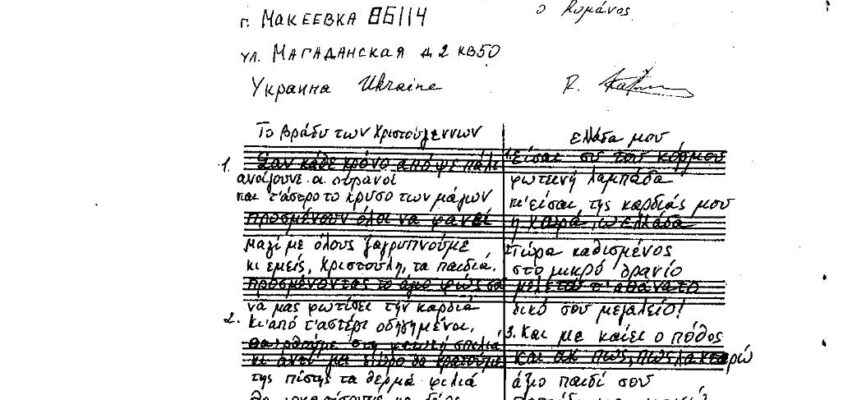 г. МАКЕЕВКА 86114
ο Ρωμάνος
ул. МАГАДАНСКАЯ д. 2 кв 50
Украина Ukraine
R.
Το βράδυ των Χριστουγέννων
1. Σαν κάθε χρόνο απόψε πάλι
ανοίγουνε οι ουρανοί
και τ'άστρο το χρυσό των μάγων
προσμένουν όλοι να φανεί
μαζί με όλους ξαγρυπνούμε
κι εμείς, Χριστούλη, τα παιδιά,
προσμένοντας το άγιο φώς σου
να μας φωτίσει την καρδιά
2. Κι από τ'αστέρι οδηγημένοι,
θα 'ρθούμε στη σπηλιά
κι αντί για δώρο θα κρατούμε
της πίστης τα θερμά φιλιά
Ελλάδα μου
1. Είσαι συ του κόσμου
φωτεινή λαμπάδα
κι'είσαι της καρδιάς μου
η χαρά, ω Ελλάδα
2. Τώρα καθισμένος
στο μικρό θρανίο
μελετώ τ'αθάνατο
δικό σου μεγαλείο!
3. Και με καίει ο πόθος
και αχ πως, πως λαχταρώ
άξιο παιδί σου